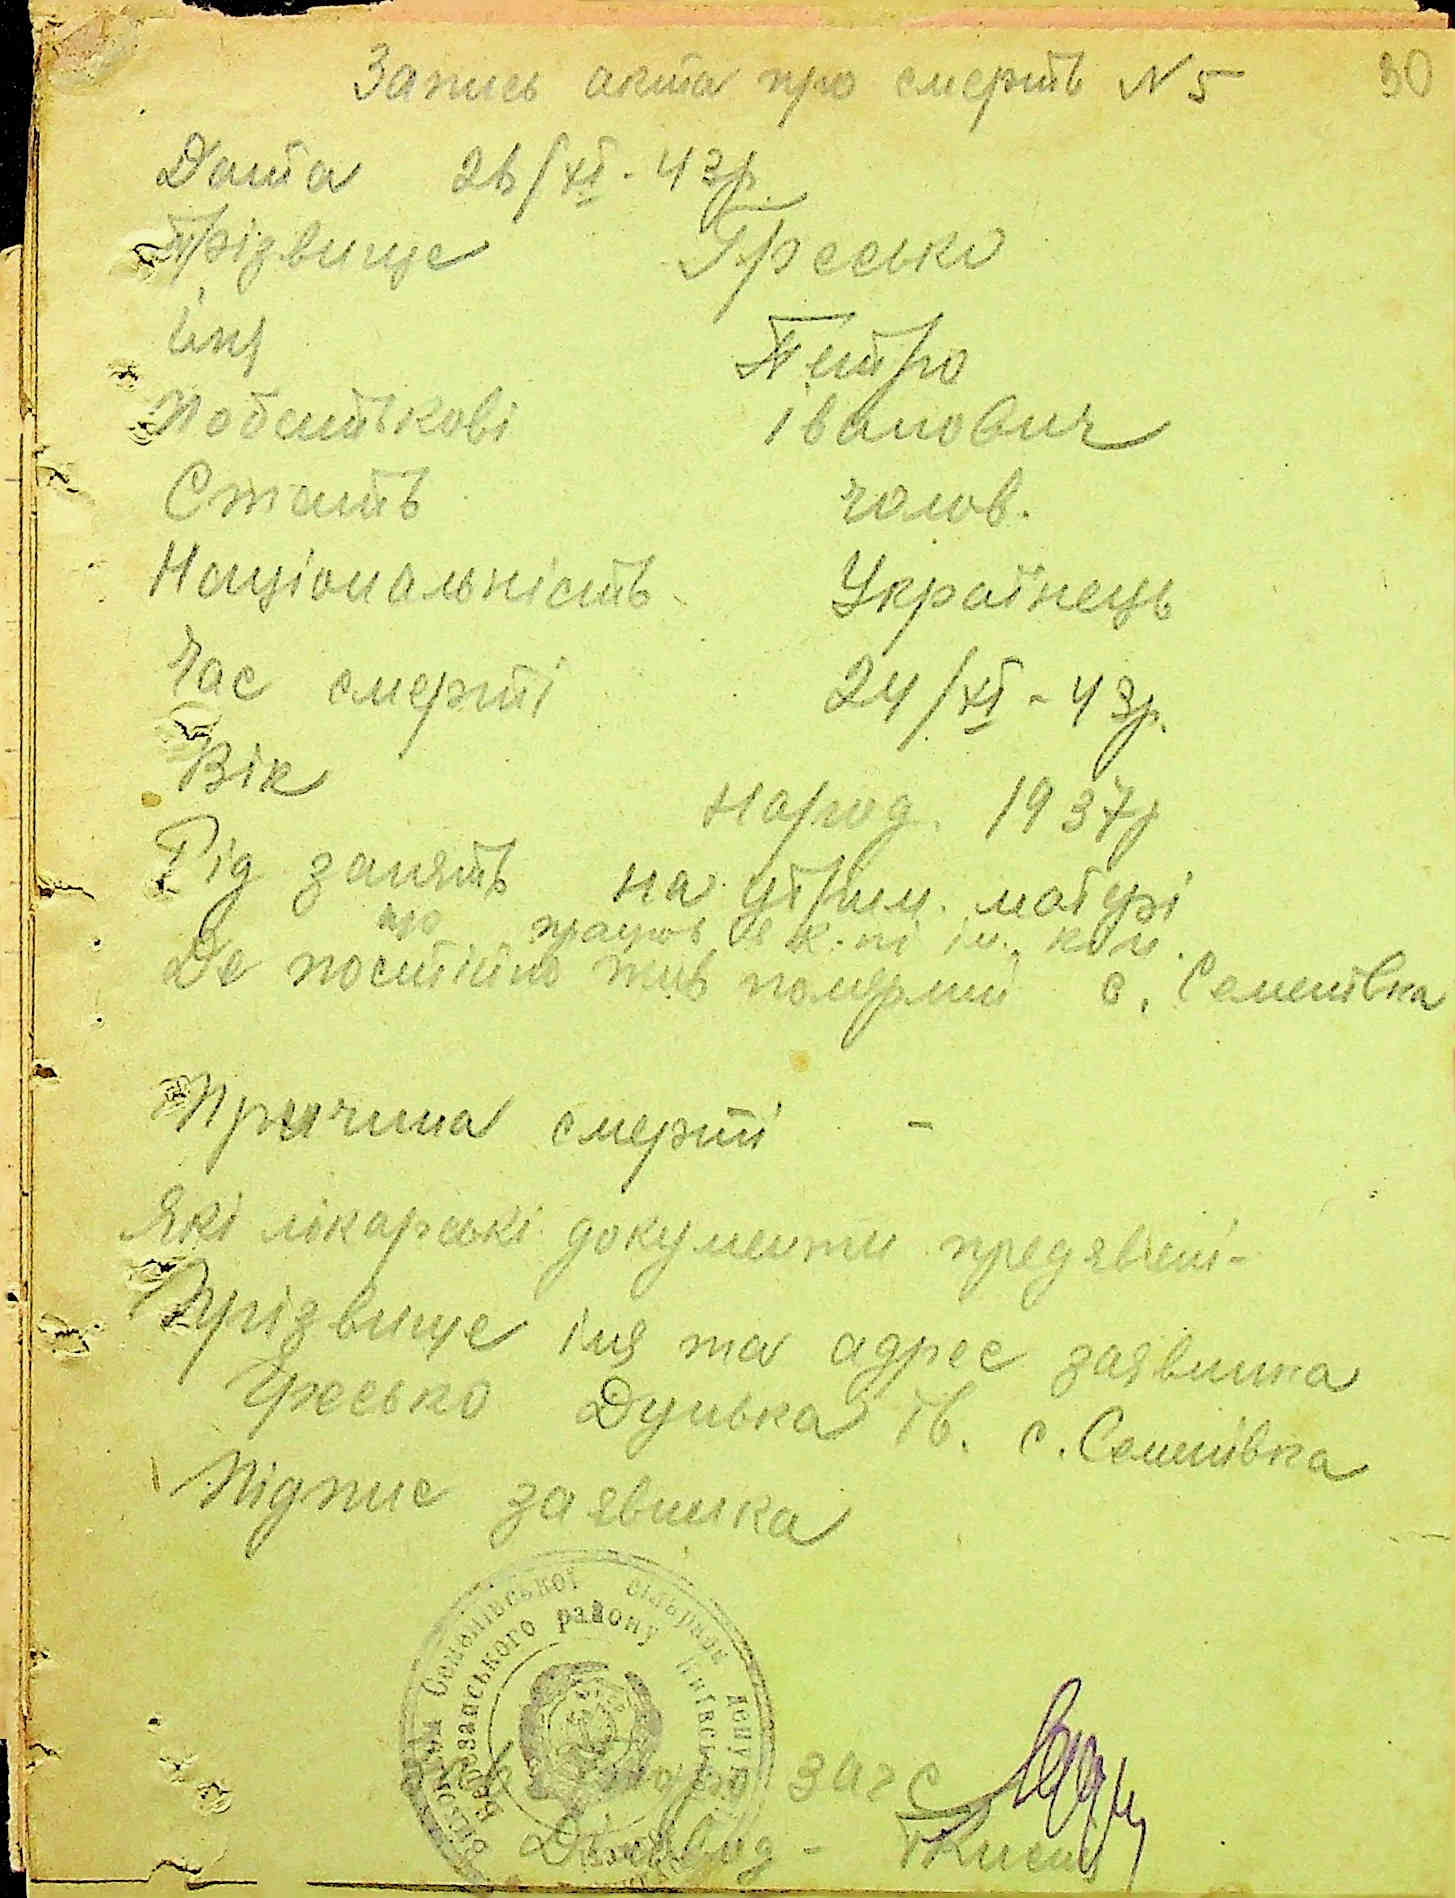 Запись акта про смерть N 5 30
Дата 26/XI - 43р.
Прізвище Гресько
імя Петро
Побатькові івамович
Стать чолов.
Національність Українець
Час смерті 24/XI - 43р.
Вік народ. 1937р
Рід занять на утрим. матері
що працюв в к.пі ім.
Де постійно жив померший с. Семенівка
Причина смерті -
Які лікарські документи предявлені -
Прізвище імя та адрес заявника
Гресько Дунька ів. с. Семенівка
Підпис заявника
Виконком Семенівської сільради депут
Березанського району Київськ
загс
Діловод -